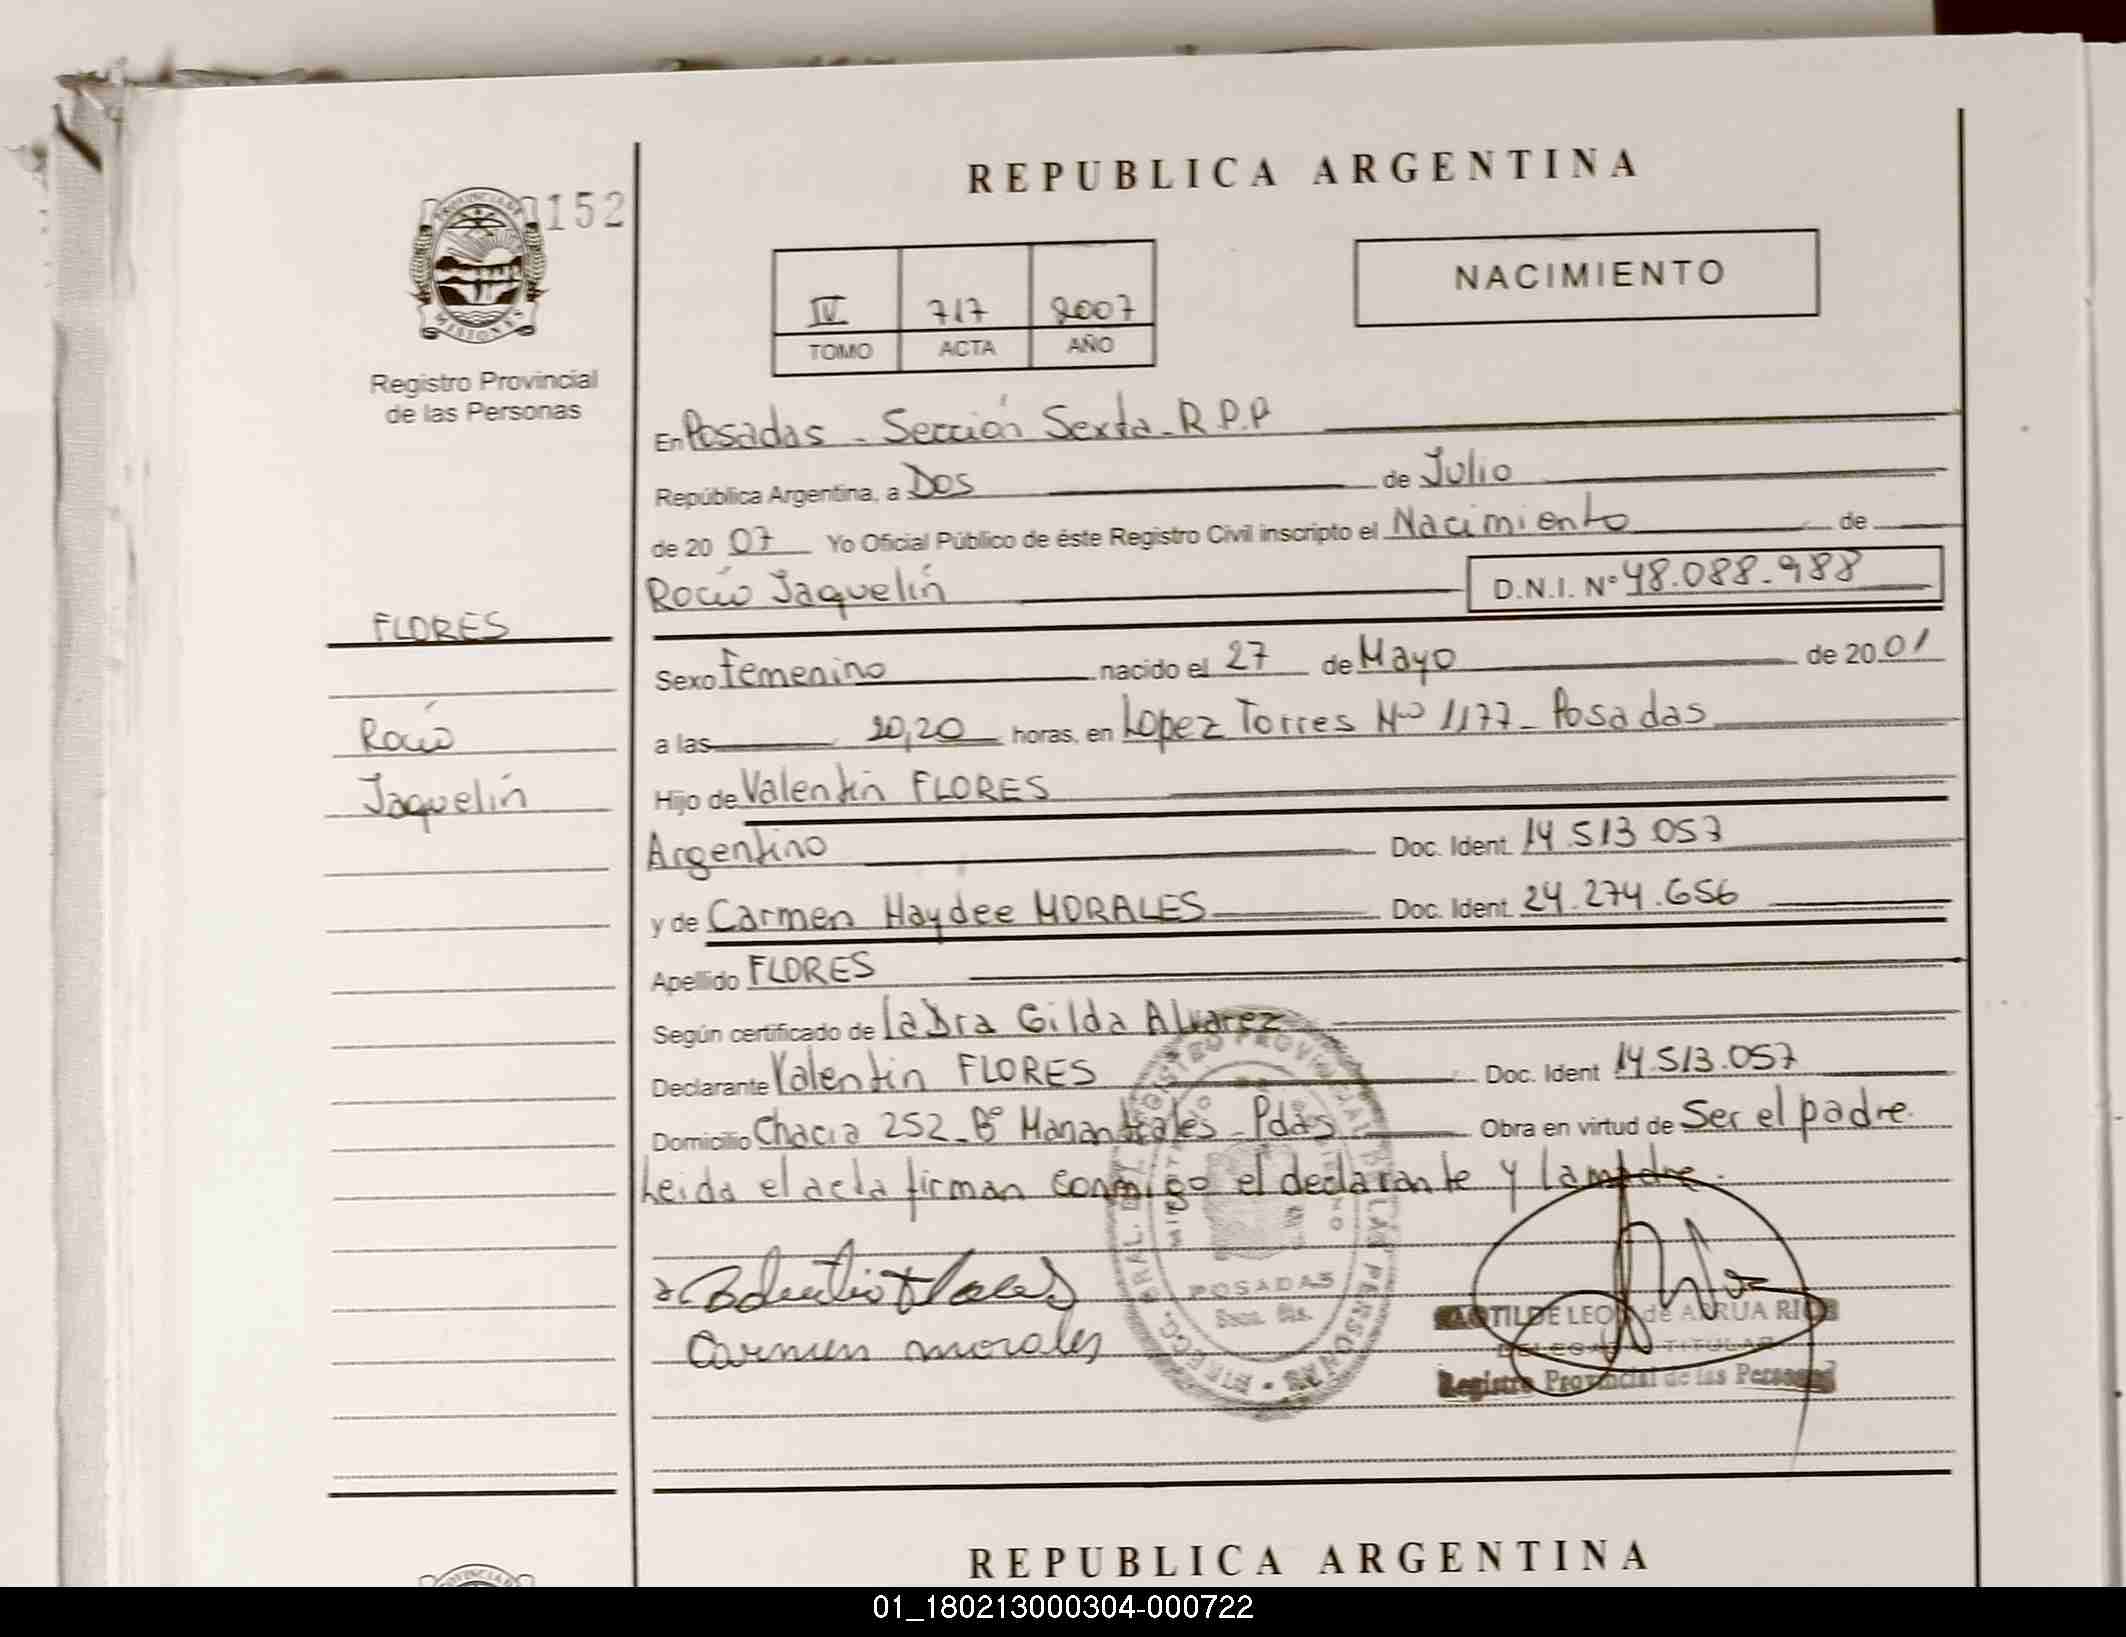 REPUBLICA ARGENTINA
152
PROVINCIA DE
MISIONES
Registro Provincial
de las Personas
IV 717 2007
TOMO ACTA AÑO
NACIMIENTO
En Posadas - Sección Sexta - R.P.P
República Argentina, a Dos de Julio
de 20 07 Yo Oficial Público de éste Registro Civil inscripto el Nacimiento de
Rocío Jaquelín D.N.I. Nº 48.088.988
FLORES
Sexo Femenino nacido el 27 de Mayo de 20 01
Rocío
a las 20,20 horas, en Lopez Torres Nº 1177 - Posadas
Jaquelín
Hijo de Valentín FLORES
Argentino Doc. Ident. 14.513.057
y de Carmen Haydee MORALES Doc. Ident. 24.274.656
Apellido FLORES
Según certificado de la Dra Gilda Alvarez
Declarante Valentín FLORES Doc. Ident 14.513.057
Domicilio Chacra 252 - Bº Manantiales - Pdas Obra en virtud de Ser el padre.
Leida el acta firman conmigo el declarante y la madre.
Carmen morales
POSADAS
LEON de ARRUA RIOS
DELEGADA TITULAR
Registro Provincial de las Personas
REPUBLICA ARGENTINA
01_180213000304-000722